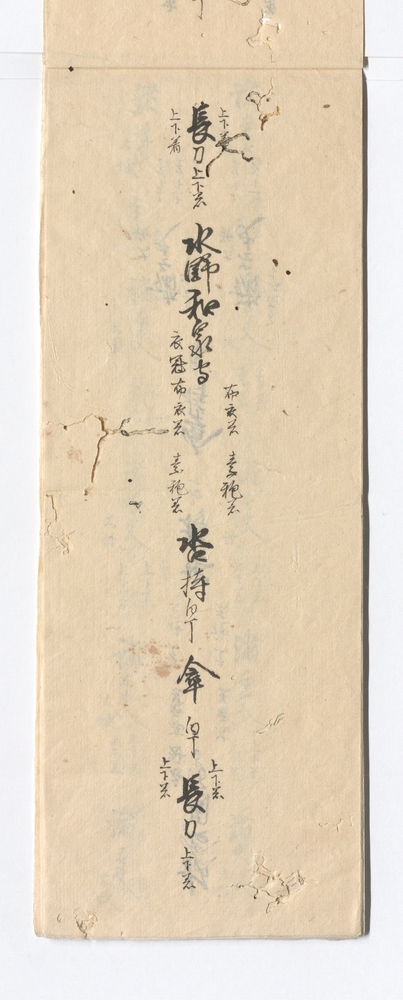 上下着
長刀上下着
上下着
水野和泉守
布衣着 素袍着
衣冠布衣着 素袍着
沓持白丁
傘白丁
上下着
長刀上下着
上下着